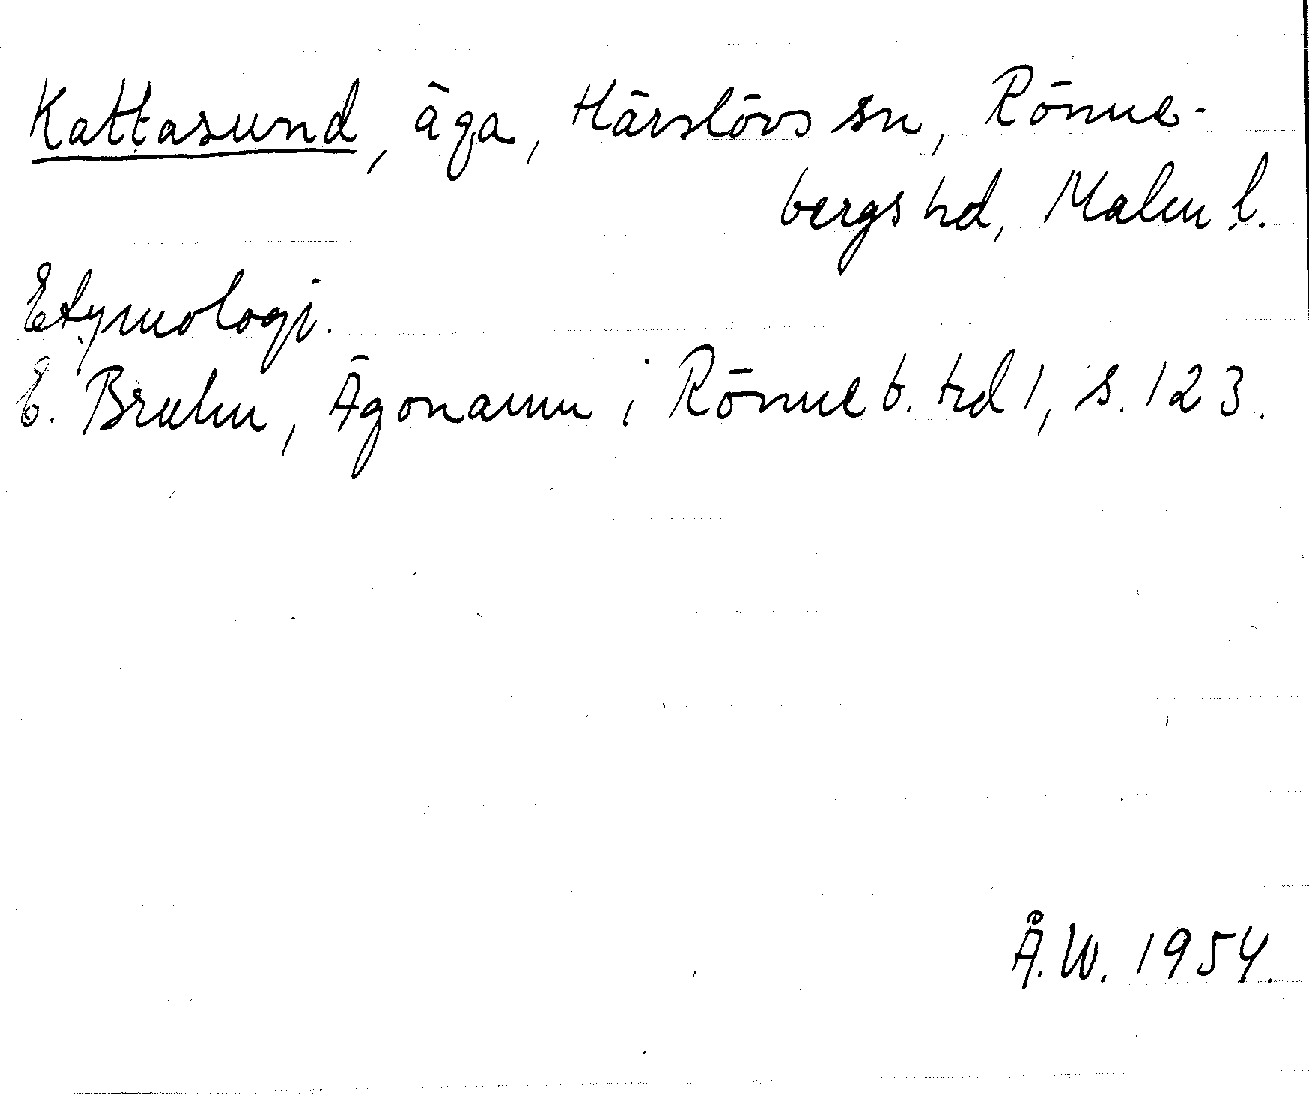 Kattasund, äga, Härslövs sn, Rönne-
bergs hd, Malm l.
Etymologi.
E. Bruhn, Ägonamn i Rönneb. hd 1, s. 123.
Å.W. 1954.